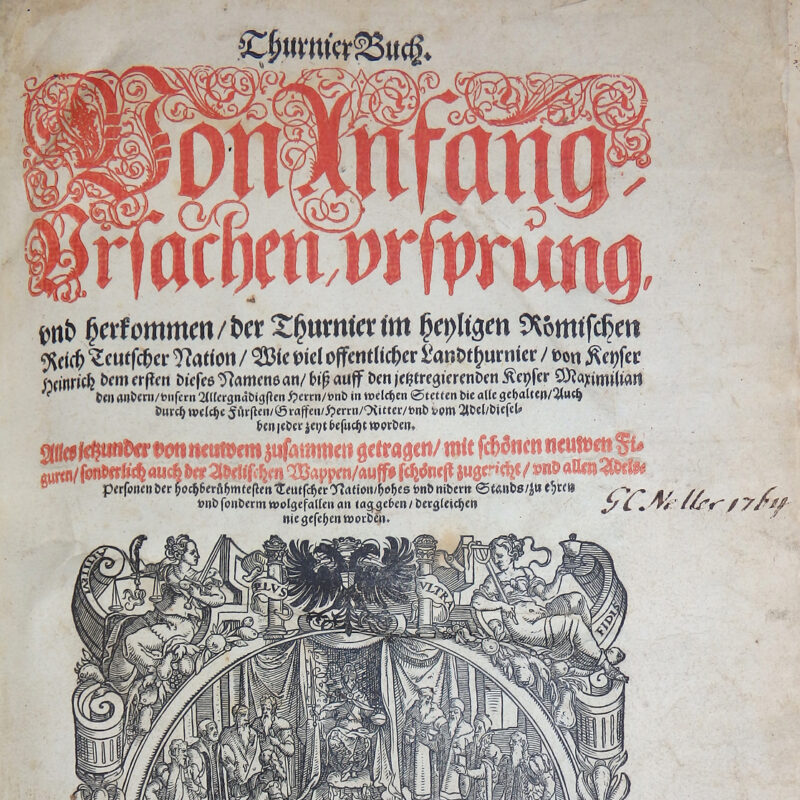 Thurnier Buch.
Von Anfang,
Vrsachen, vrsprůng,
vnd herkommen / der Thurnier im heyligen Römischen
Reich Teutscher Nation / Wie viel offentlicher Landthurnier / von Keyser
Heinrich dem ersten dieses Namens an / biß auff den jetztregierenden Keyser Maximilian
den andern / vnsern Allergnädigsten Herrn / vnd in welchen Stetten die alle gehalten / Auch
durch welche Fürsten / Graffen / Herrn / Ritter / vnd vom Adel / diesel-
ben jeder zeyt besucht worden.
Alles jetzunder von neuwem zusammen getragen / mit schönen neuwen Fi-
guren / sonderlich auch der Adelischen Wappen / auffs schönest zugericht / vnd allen Adels-
Personen der hochberühmtesten Teutscher Nation / hohes vnd nidern Stands / zu ehren
vnd sonderm wolgefallen an tag geben / dergleichen
nie gesehen worden.
GC Neller 1764
PLVS
VLTR
FIDIS